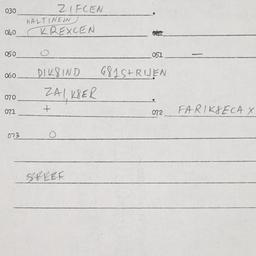 030 ZIFCEN
HALTINEIN
040 KREXCEN
050 O 051 —
060 DIK8IND G81S+RIJEN
070 ZAI,K8ER
071 + 072 FARIK8ECA X
073 O